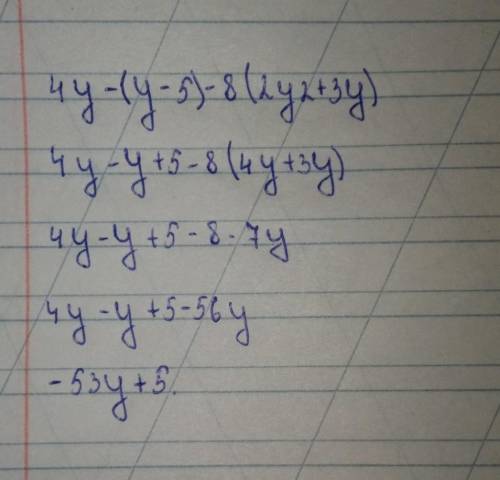 4y-(y-5)-8(2y2+3y)
4y-y+5-8(4y+3y)
4y-y+5-8·7y
4y-y+5-56y
-53y+5.